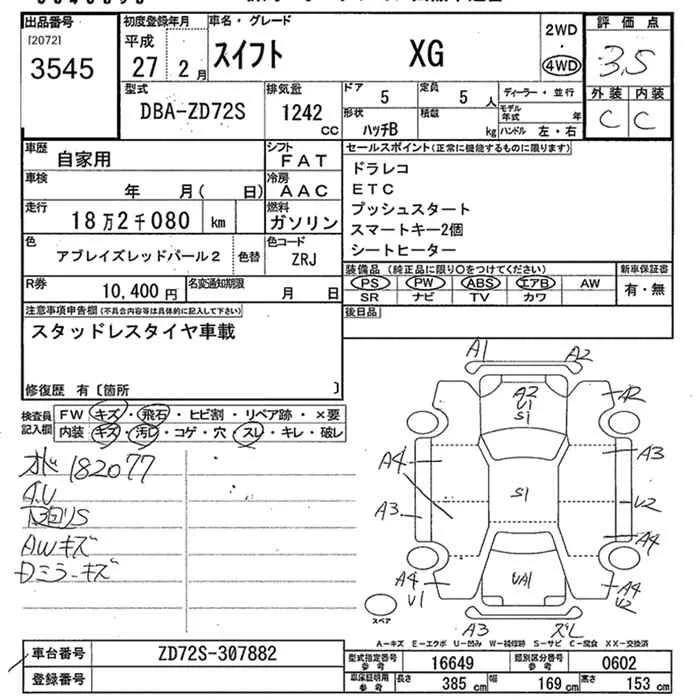 出品番号
[2072]
3545
初度登録年月
平成
27 2月
車名・グレード
スイフト XG
2WD
・
4WD
評価点
3.5
外装 内装
C C
型式
DBA-ZD72S
排気量
1242
CC
ドア 5
定員 5 人
形状 ハッチB
積載 kg
ディーラー・並行
モデル年式 年
ハンドル 左・右
車歴
自家用
シフト
FAT
車検
年 月( 日)
冷房
AAC
走行
18万2千080 km
燃料
ガソリン
色
アブレイズレッドパール2
色替
色コード
ZRJ
R券
10,400円
名変通知期限
月 日
セールスポイント(正常に機能するものに限ります)
ドラレコ
ETC
プッシュスタート
スマートキー2個
シートヒーター
装備品(純正品に限り○をつけてください)
PS PW ABS エアB AW
SR ナビ TV カワ
新車保証書
有・無
後日品
注意事項申告欄(不具合内容等は具体的に記入して下さい)
スタッドレスタイヤ車載
修復歴 有〔箇所 〕
検査員記入欄
FW キズ・飛石・ヒビ割・リペア跡・×要
内装 キズ・汚レ・コゲ・穴・スレ・キレ・破レ
オド 182077
A.U
AWキズ
Dミラーキズ
A1 A2
A2
U1
S1
A2
A4
A3
A3
S1
U2
A4
A4
U1
UA1
A4
U2
A3 ズレ
スペア
A-キズ E-エクボ U-凹み W-補修跡 S-サビ C-腐食 XX-交換済
車台番号 ZD72S-307882
登録番号
型式指定番号 参考 16649
類別区分番号 参考 0602
車庫証明用 参考 長さ 385 cm 幅 169 cm 高さ 153 cm